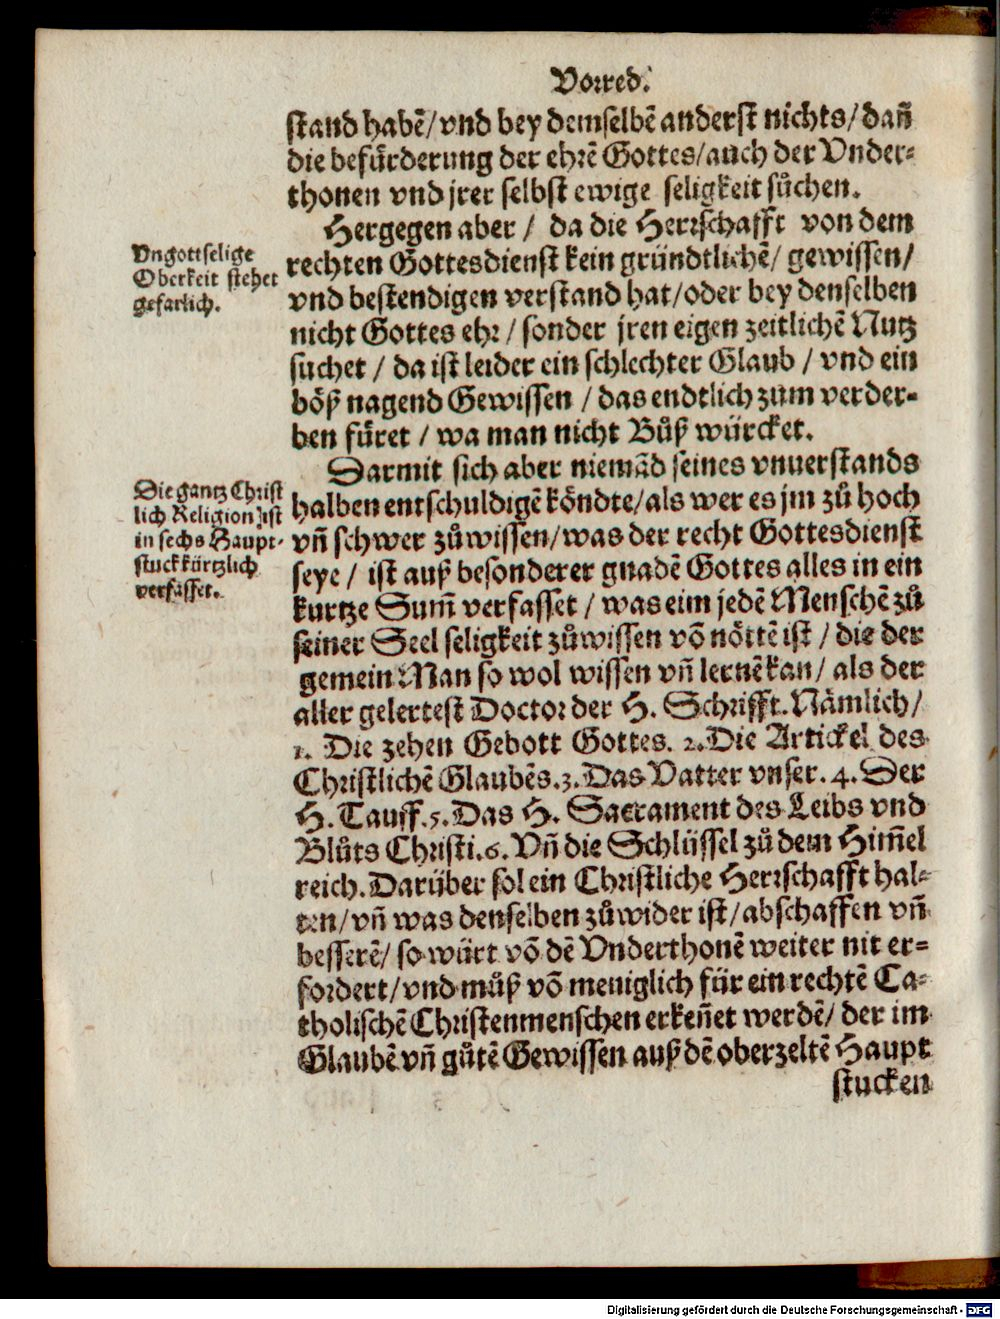 Vorred.
stand habē/vnd bey demselbē anderst nichts/dañ
die befürderung der ehrē Gottes/auch der Vnder-
thonen vnd jrer selbst ewige seligkeit sůchen.
Hergegen aber / da die Herrschafft von dem
Vngottselige
Oberkeit stehet
gefarlich.
rechten Gottesdienst kein gründtlichē/ gewissen/
vnd bestendigen verstand hat/oder bey denselben
nicht Gottes ehr / sonder jren eigen zeitlichē Nutz
suchet / da ist leider ein schlechter Glaub / vnd ein
böß nagend Gewissen / das endtlich zum verder-
ben füret / wa man nicht Bůß würcket.
Darmit sich aber niemād seines vnuerstands
Die gantz Christ
lich Religion ist
in sechs Haupt-
stuck kürtzlich
verfasset.
halben entschuldigē köndte/als wer es jm zů hoch
vñ schwer zůwissen/was der recht Gottesdienst
seye / ist auß besonderer gnadē Gottes alles in ein
kurtze Sum̃ verfasset / was eim jedē Menschē zů
seiner Seel seligkeit zůwissen vō nöttē ist / die der
gemein Man so wol wissen vñ lernē kan / als der
aller gelertest Doctor der H. Schrifft. Nämlich /
1. Die zehen Gebott Gottes. 2. Die Artickel des
Christlichē Glaubēs. 3. Das Vatter vnser. 4. Der
H. Tauff. 5. Das H. Sacrament des Leibs vnd
Blůts Christi. 6. Vñ die Schlüssel zů dem Him̃el
reich. Darüber sol ein Christliche Herrschafft hal-
ten/vñ was denselben zůwider ist/abschaffen vñ
besserē/ so würt vō dē Vnderthonē weiter nit er-
fordert/vnd můß vō meniglich für ein rechtē Ca-
tholischē Christenmenschen erkeñet werdē/ der im
Glaubē vñ gůtē Gewissen auß dē oberzeltē Haupt
stucken
Digitalisierung gefördert durch die Deutsche Forschungsgemeinschaft - DFG